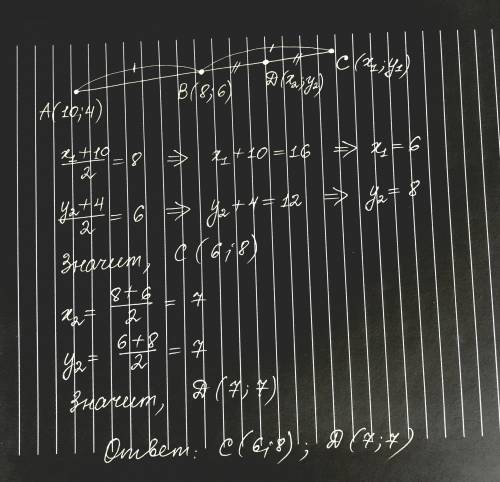 C(x₁;y₁)
D(x₂;y₂)
B(8;6)
A(10;4)
(x₁+10)/2 = 8 ⇒ x₁+10=16 ⇒ x₁=6
(y₂+4)/2 = 6 ⇒ y₂+4=12 ⇒ y₂=8
Значит, C(6;8)
x₂= (8+6)/2 = 7
y₂= (6+8)/2 = 7
Значит, D(7;7)
Ответ: C(6;8); D(7;7)